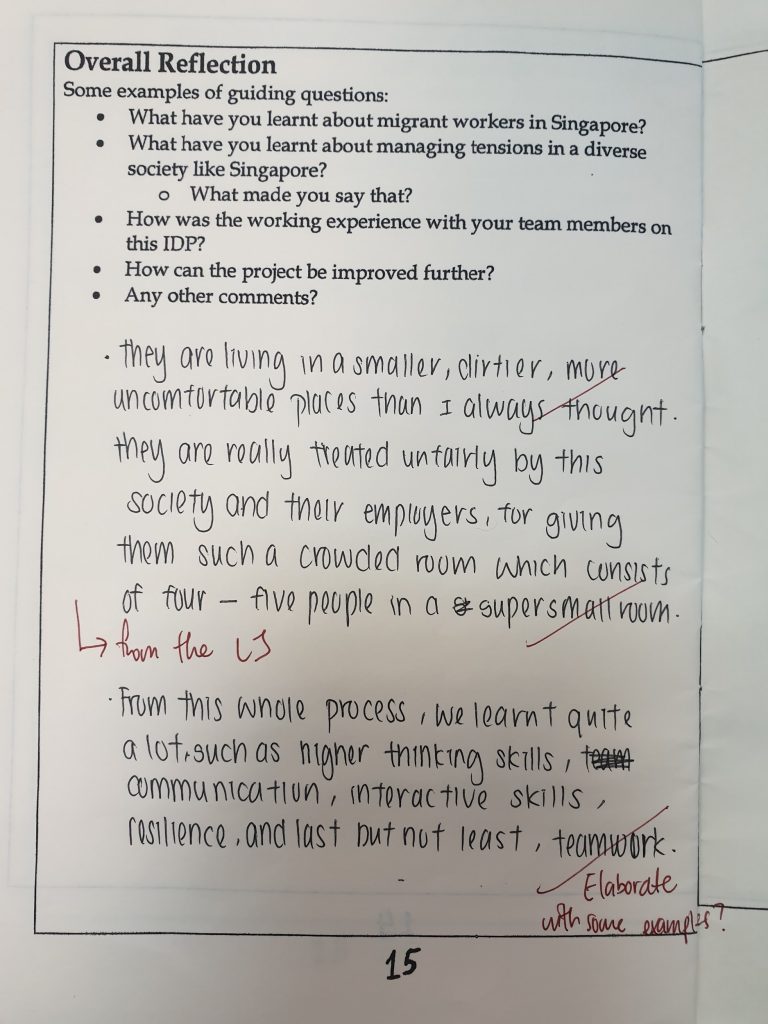 Overall Reflection
Some examples of guiding questions:
• What have you learnt about migrant workers in Singapore?
• What have you learnt about managing tensions in a diverse
society like Singapore?
o What made you say that?
• How was the working experience with your team members on
this IDP?
• How can the project be improved further?
• Any other comments?
· they are living in a smaller, dirtier, more
uncomfortable places than I always thought.
they are really treated unfairly by this
society and their employers, for giving
them such a crowded room which consists
of four - five people in a super small room.
from the LJ
· From this whole process, we learnt quite
a lot, such as higher thinking skills, team
communication, interactive skills,
resilience, and last but not least, teamwork.
Elaborate
with some examples?
15